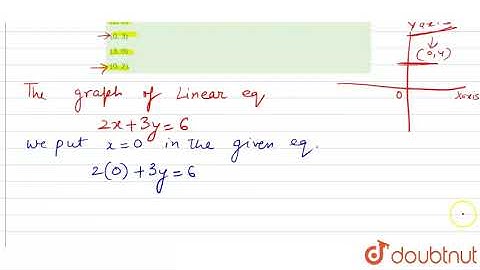 (0, 3)
(0, 2)
Y axis
(0,4)
0
X axis
The graph of Linear eq
2x+3y=6
we put x=0 in the given eq.
2(0)+3y=6
doubtnut